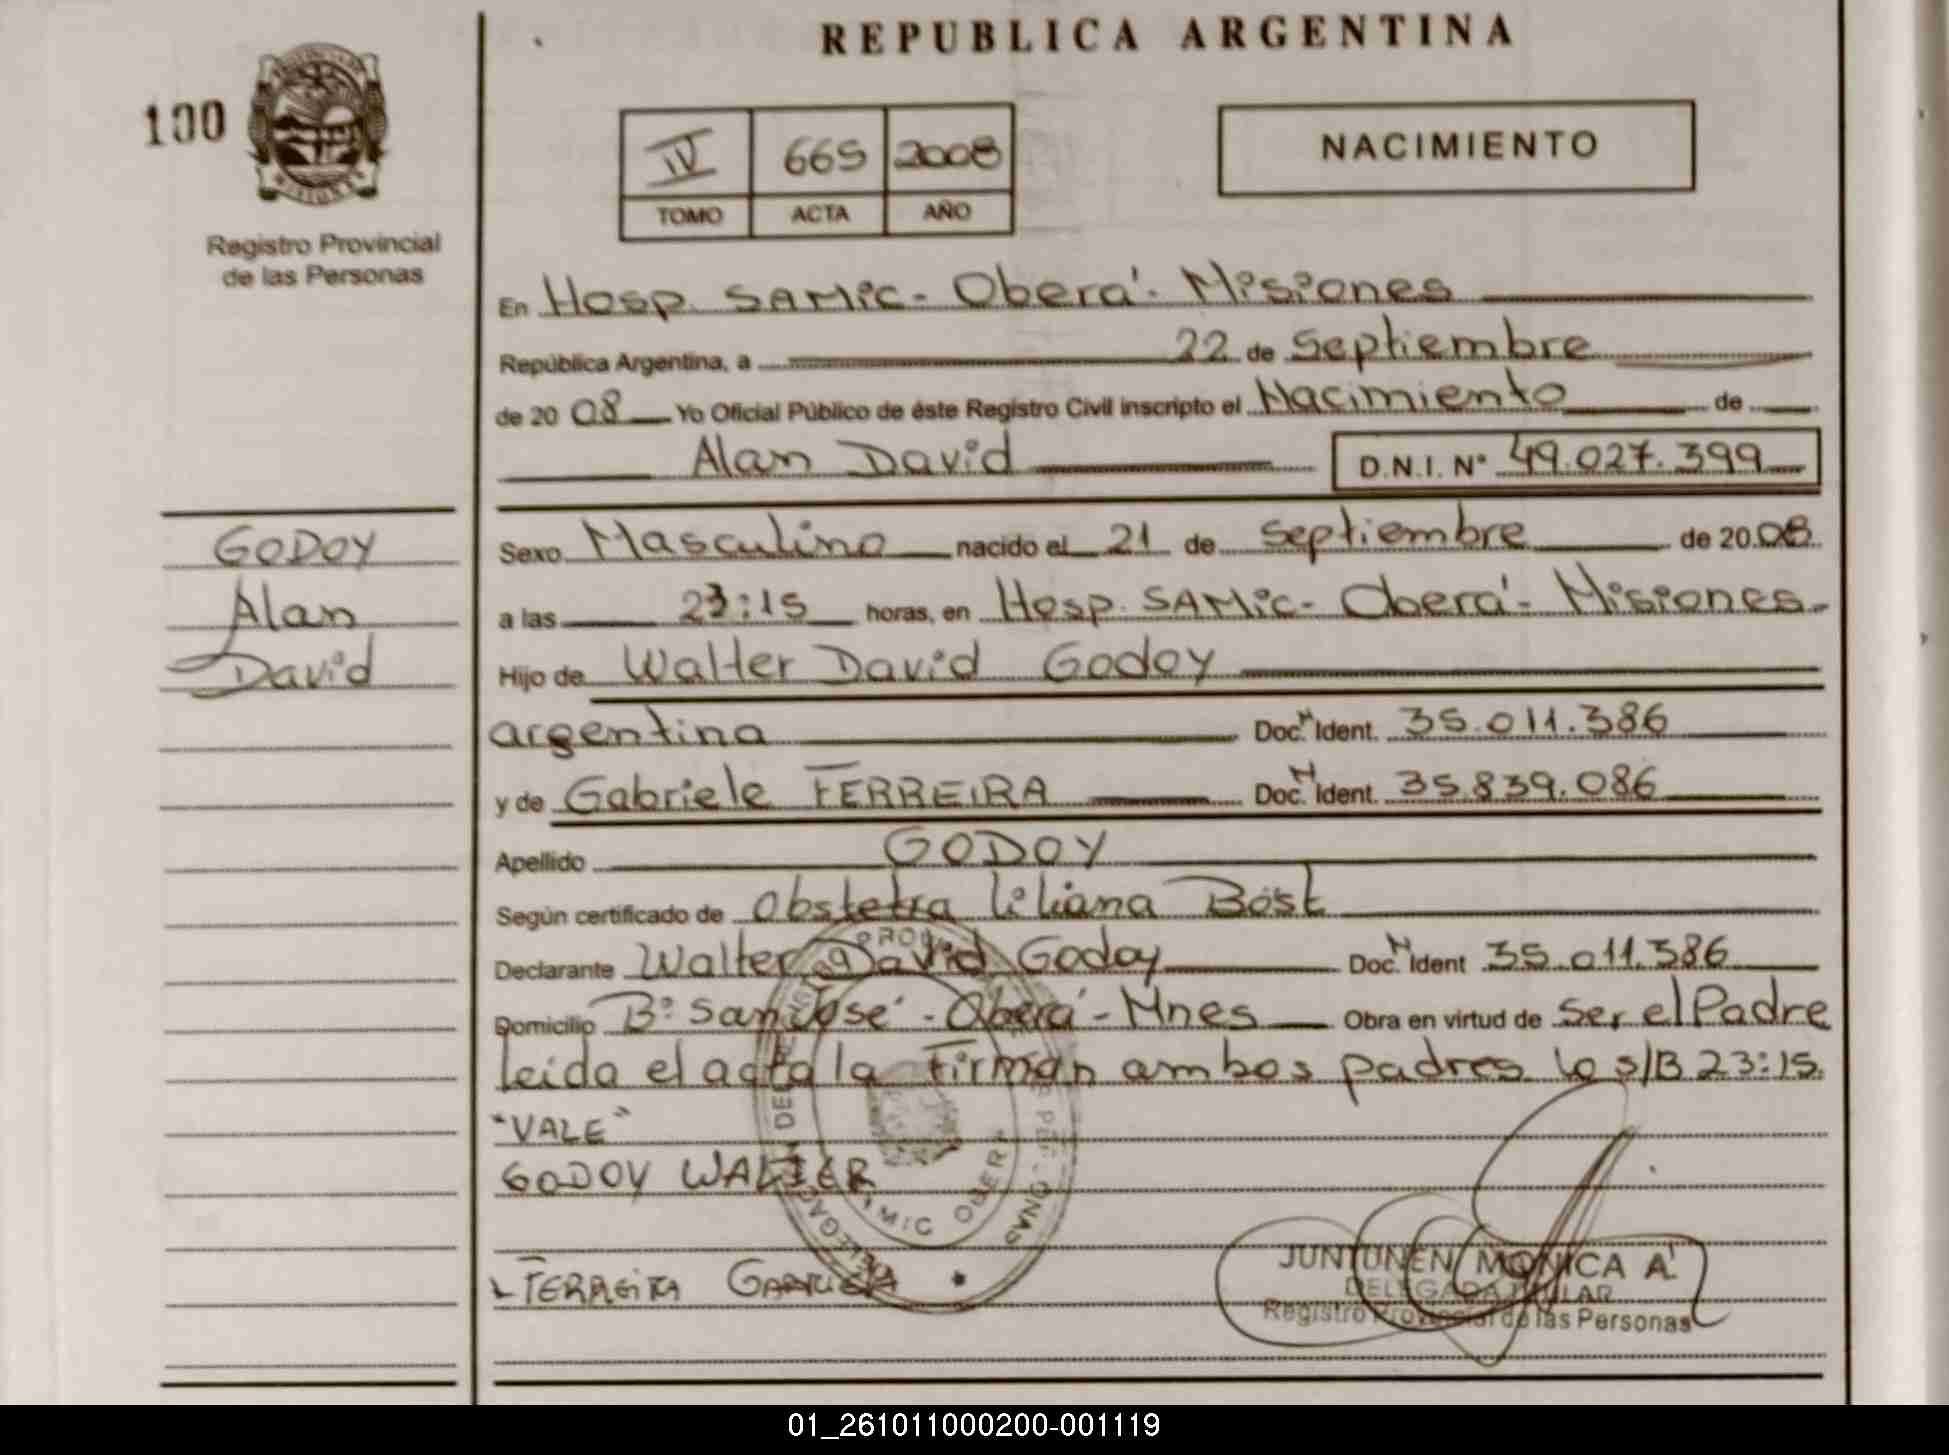 REPUBLICA ARGENTINA
100
Registro Provincial
de las Personas
IV 665 2008
TOMO ACTA AÑO
NACIMIENTO
En Hosp. SAMIC - Oberá - Misiones
República Argentina, a 22 de Septiembre
de 20 08 Yo Oficial Público de éste Registro Civil inscripto el Nacimiento de
Alan David D.N.I. N° 49.027.399
GODOY
Alan
David
Sexo Masculino nacido el 21 de Septiembre de 20 08
a las 23:15 horas, en Hosp. SAMIC - Oberá - Misiones.
Hijo de Walter David Godoy
argentina Doc. N Ident. 35.011.386
y de Gabriele FERREIRA Doc. N Ident. 35.839.086
Apellido GODOY
Según certificado de Obstetra Liliana Böst
Declarante Walter David Godoy Doc. N Ident 35.011.386
Domicilio B° San José - Oberá - Mnes Obra en virtud de Ser el Padre
leida el acta la Firman ambos padres lo s/B 23:15.
"VALE"
GODOY WALTER
FERREIRA GABRIELA
JUNTUNEN MONICA A.
DELEGADA TITULAR
Registro Provincial de las Personas
01_261011000200-001119